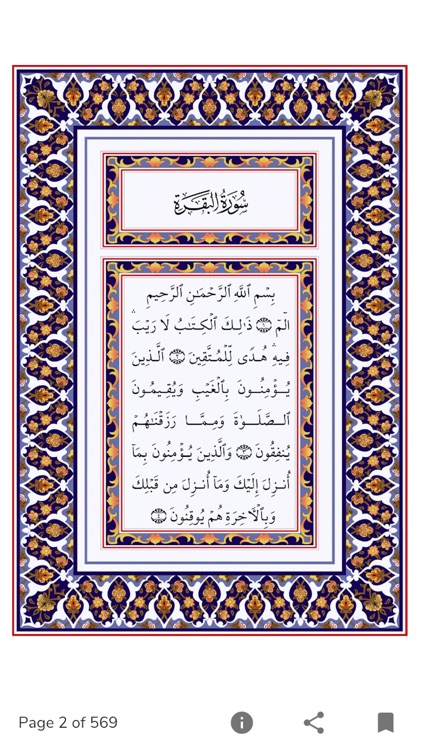 سُورَةُ الْبَقَرَةِ
بِسْمِ ٱللَّهِ ٱلرَّحْمَٰنِ ٱلرَّحِيمِ
الٓمٓ ۝١ ذَٰلِكَ ٱلْكِتَٰبُ لَا رَيْبَ ۛ
فِيهِ ۛ هُدًى لِّلْمُتَّقِينَ ۝٢ ٱلَّذِينَ
يُؤْمِنُونَ بِٱلْغَيْبِ وَيُقِيمُونَ
ٱلصَّلَوٰةَ وَمِمَّا رَزَقْنَٰهُمْ
يُنفِقُونَ ۝٣ وَٱلَّذِينَ يُؤْمِنُونَ بِمَآ
أُنزِلَ إِلَيْكَ وَمَآ أُنزِلَ مِن قَبْلِكَ
وَبِٱلْأَخِرَةِ هُمْ يُوقِنُونَ ۝٤
Page 2 of 569